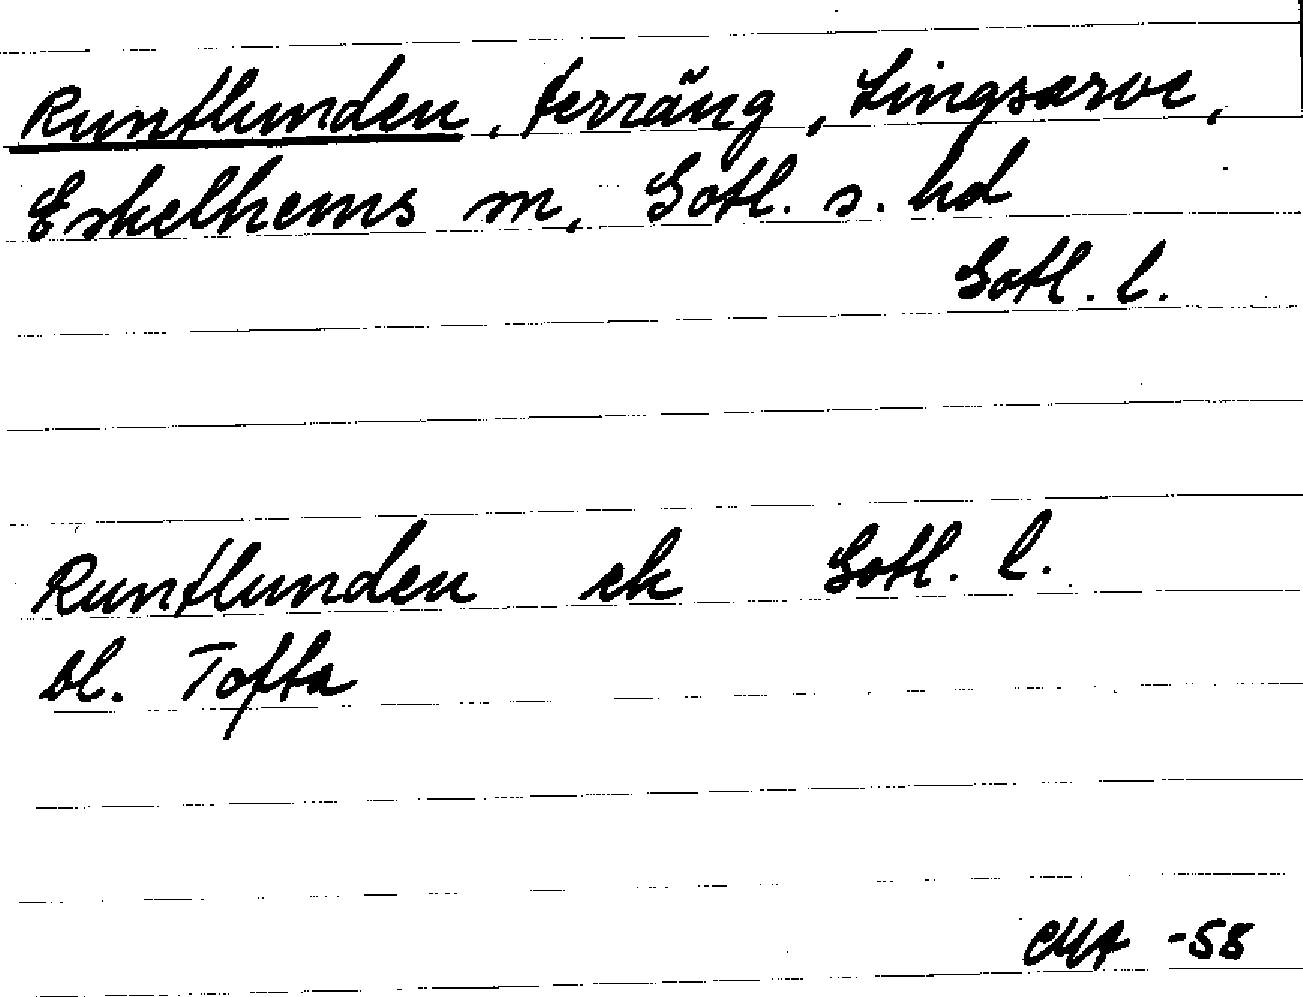 Runtlunden, terräng, Lingsarve,
Eskelhems sn, Gotl. s. hd
Gotl. l.
Runtlunden ek Gotl. l.
bl. Tofta
-58